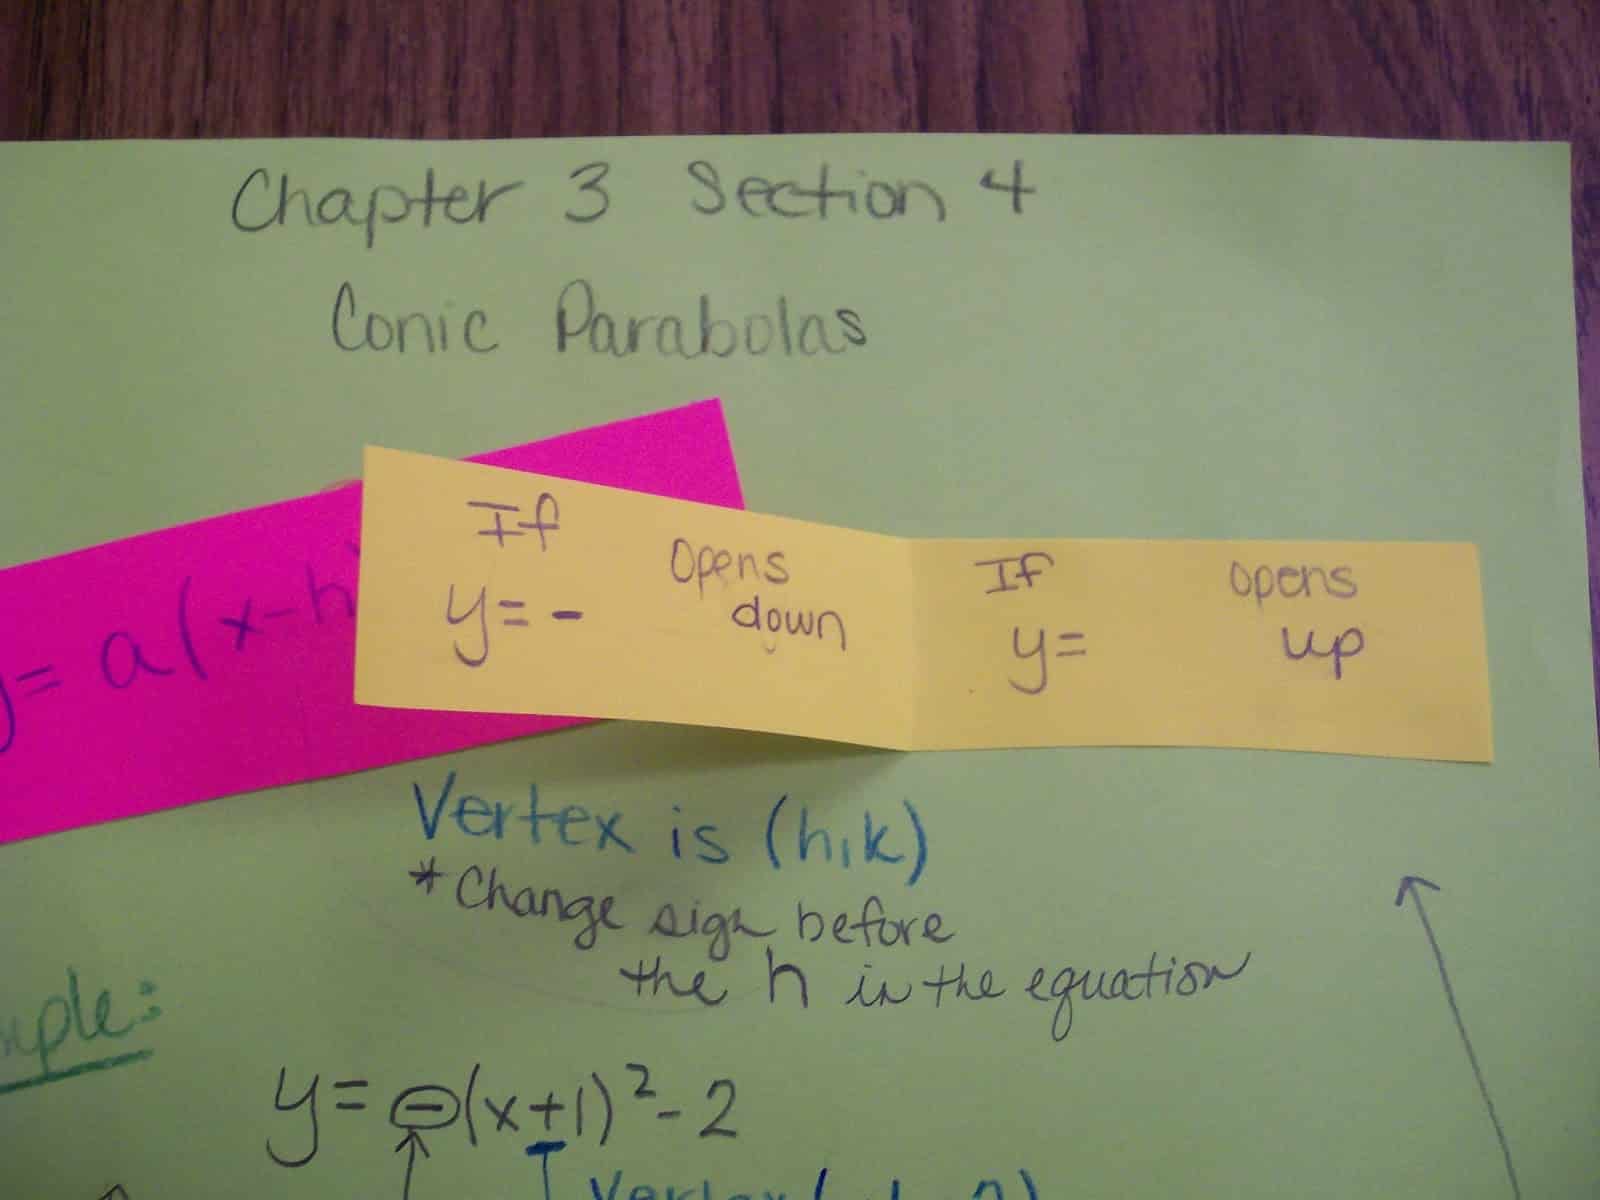 Chapter 3 Section 4
Conic Parabolas
= a(x-h
If
y= -
Opens
down
If
y=
opens
up
Vertex is (h,k)
*Change sign before
the h in the equation
y= -(x+1)²-2